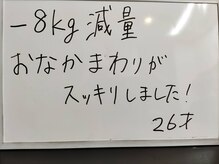 -8kg 減量
おなかまわりが
スッキリしました!
26才